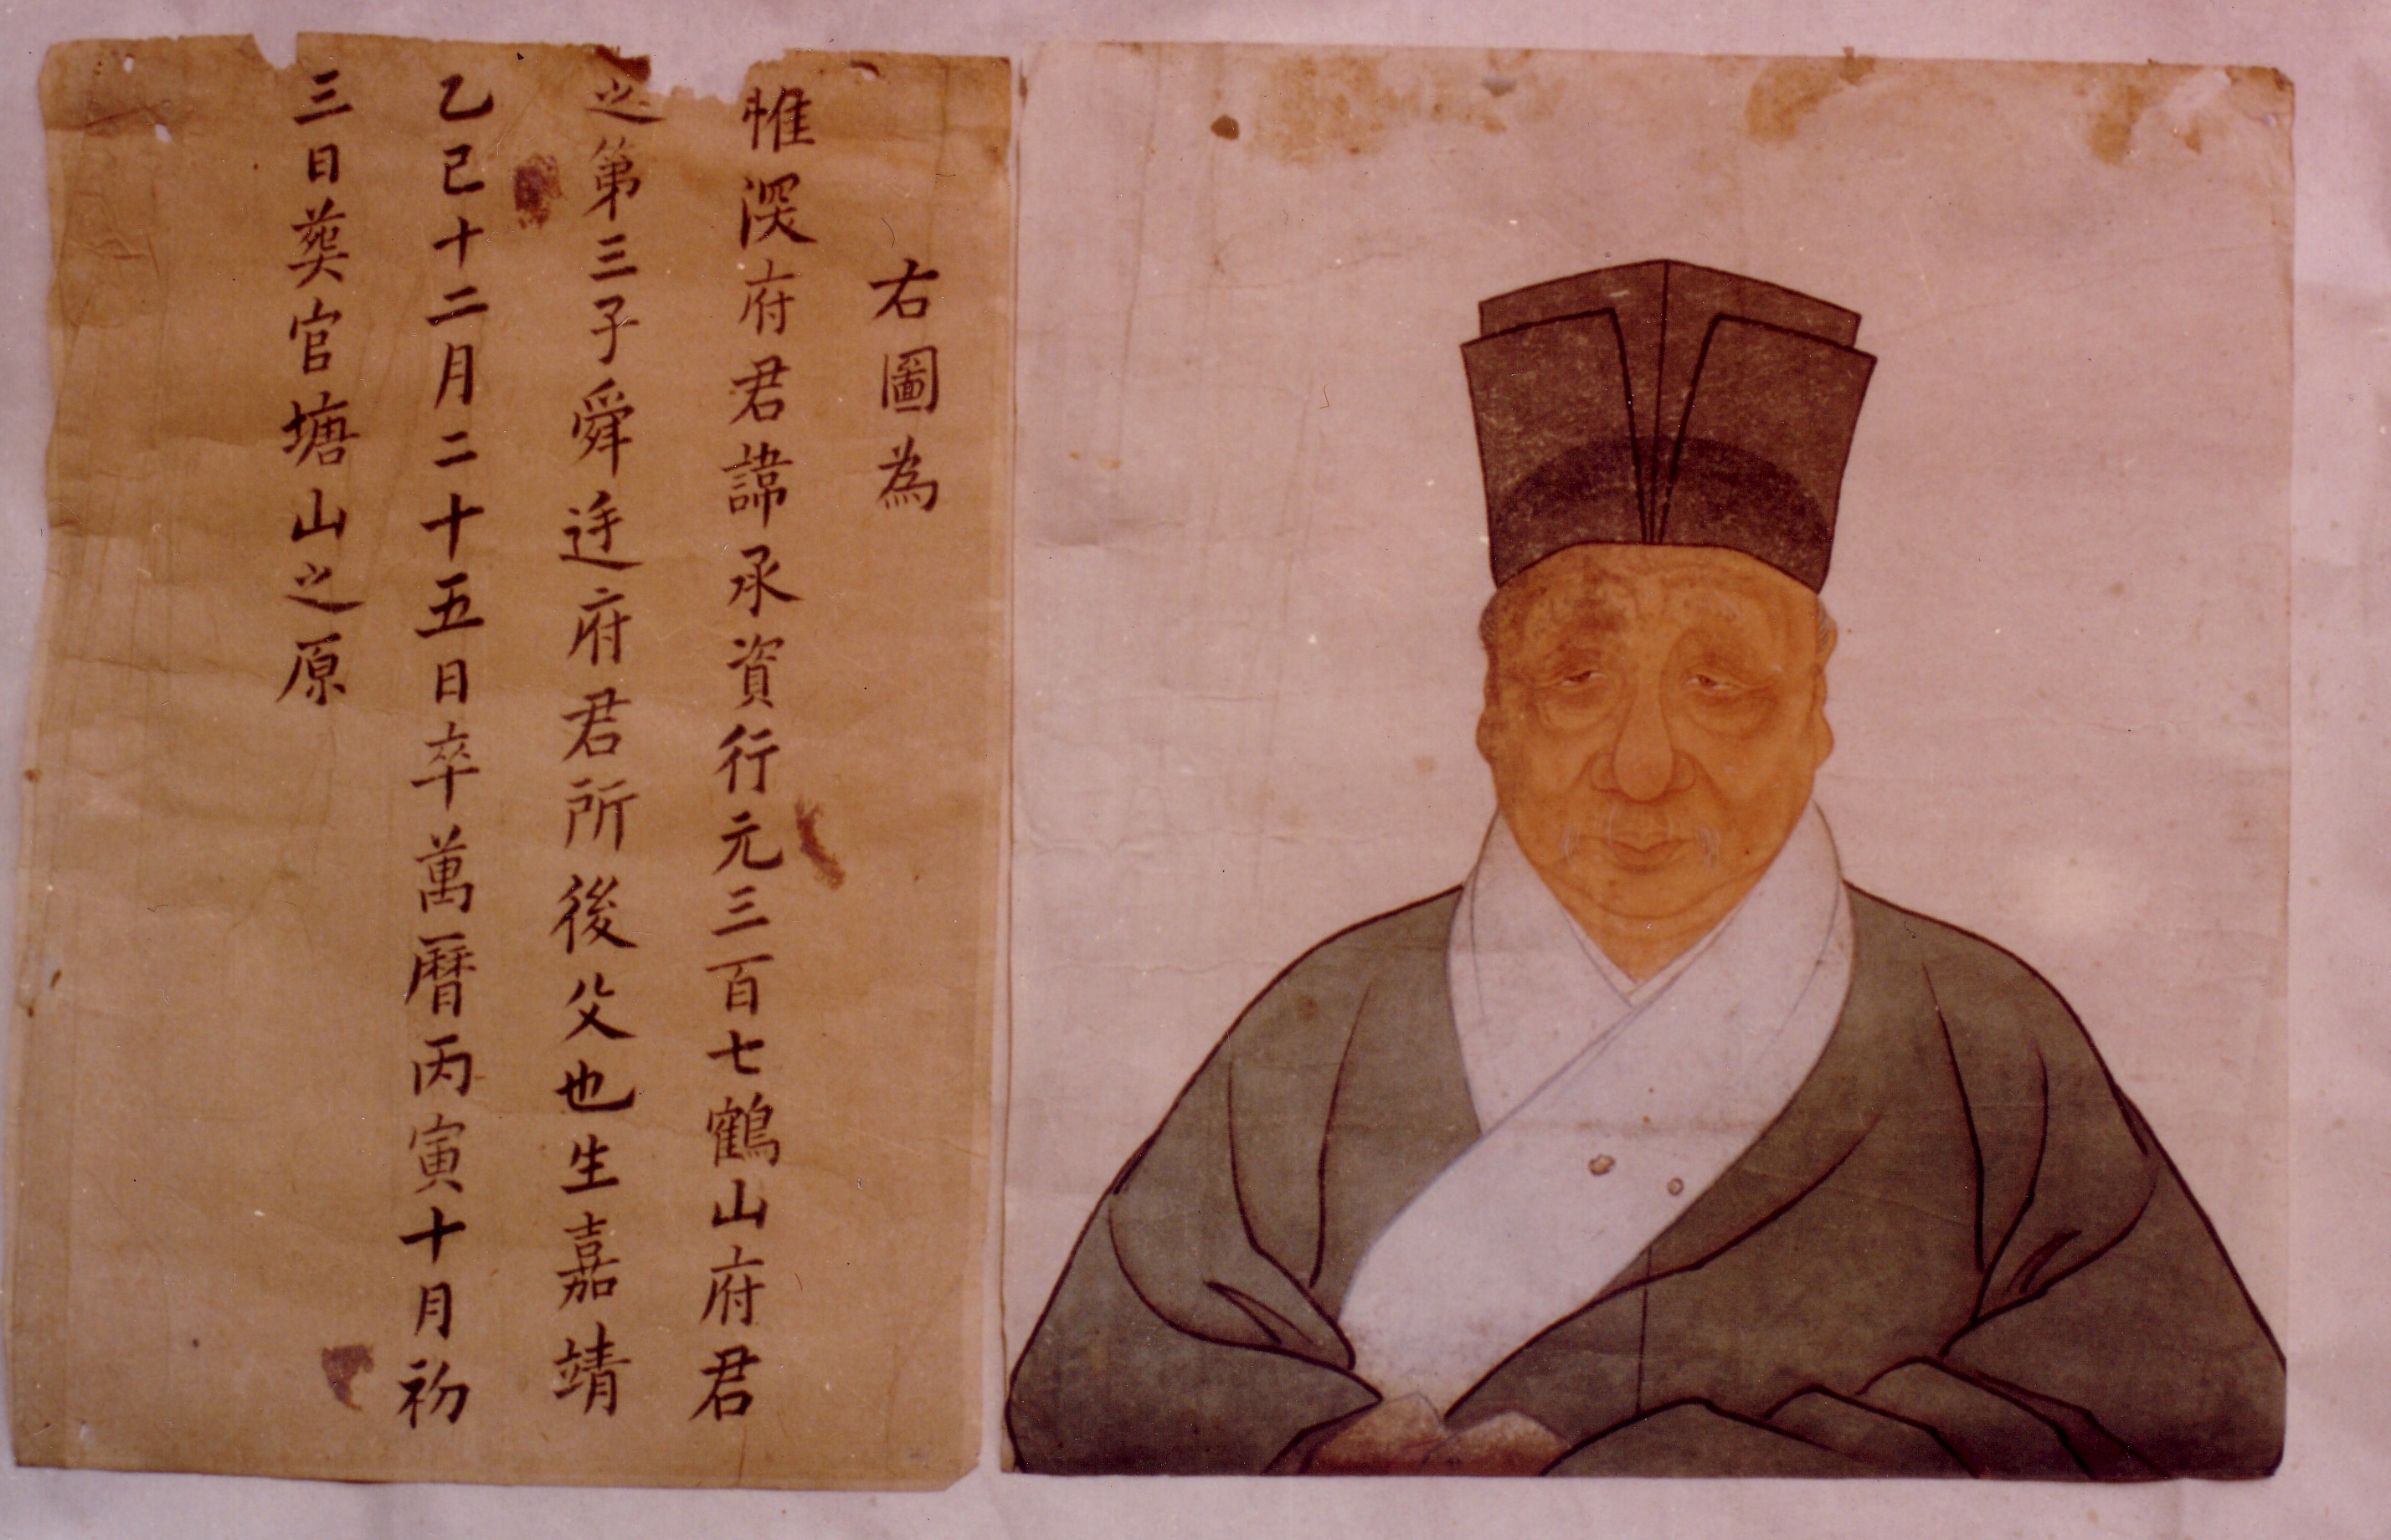 右圖為
惟深府君諱承資行元三百七鶴山府君
之第三子舜迋府君所後父也生嘉靖
乙巳十二月二十五日卒萬曆丙寅十月初
三日葬官塘山之原